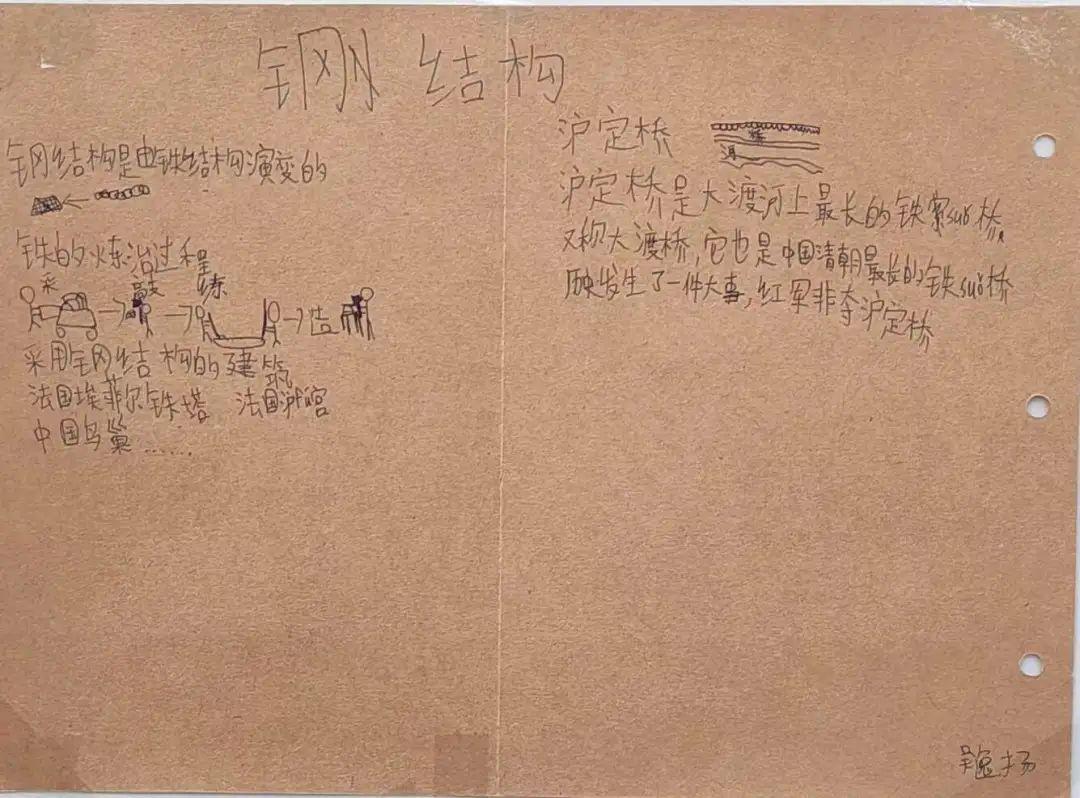 钢结构
钢结构是由铁结构演变的
铁的炼冶过程
采 敲 练
造
采用钢结构的建筑
法国埃菲尔铁塔 法国pfú宫
中国鸟巢……
沪定桥
桥
河
沪定桥是大渡河上最长的铁索suǒ桥,
又称大渡桥,它也是中国清朝最长的铁suǒ桥
历史发生了一件大事,红军非夺沪定桥
吴逸扬